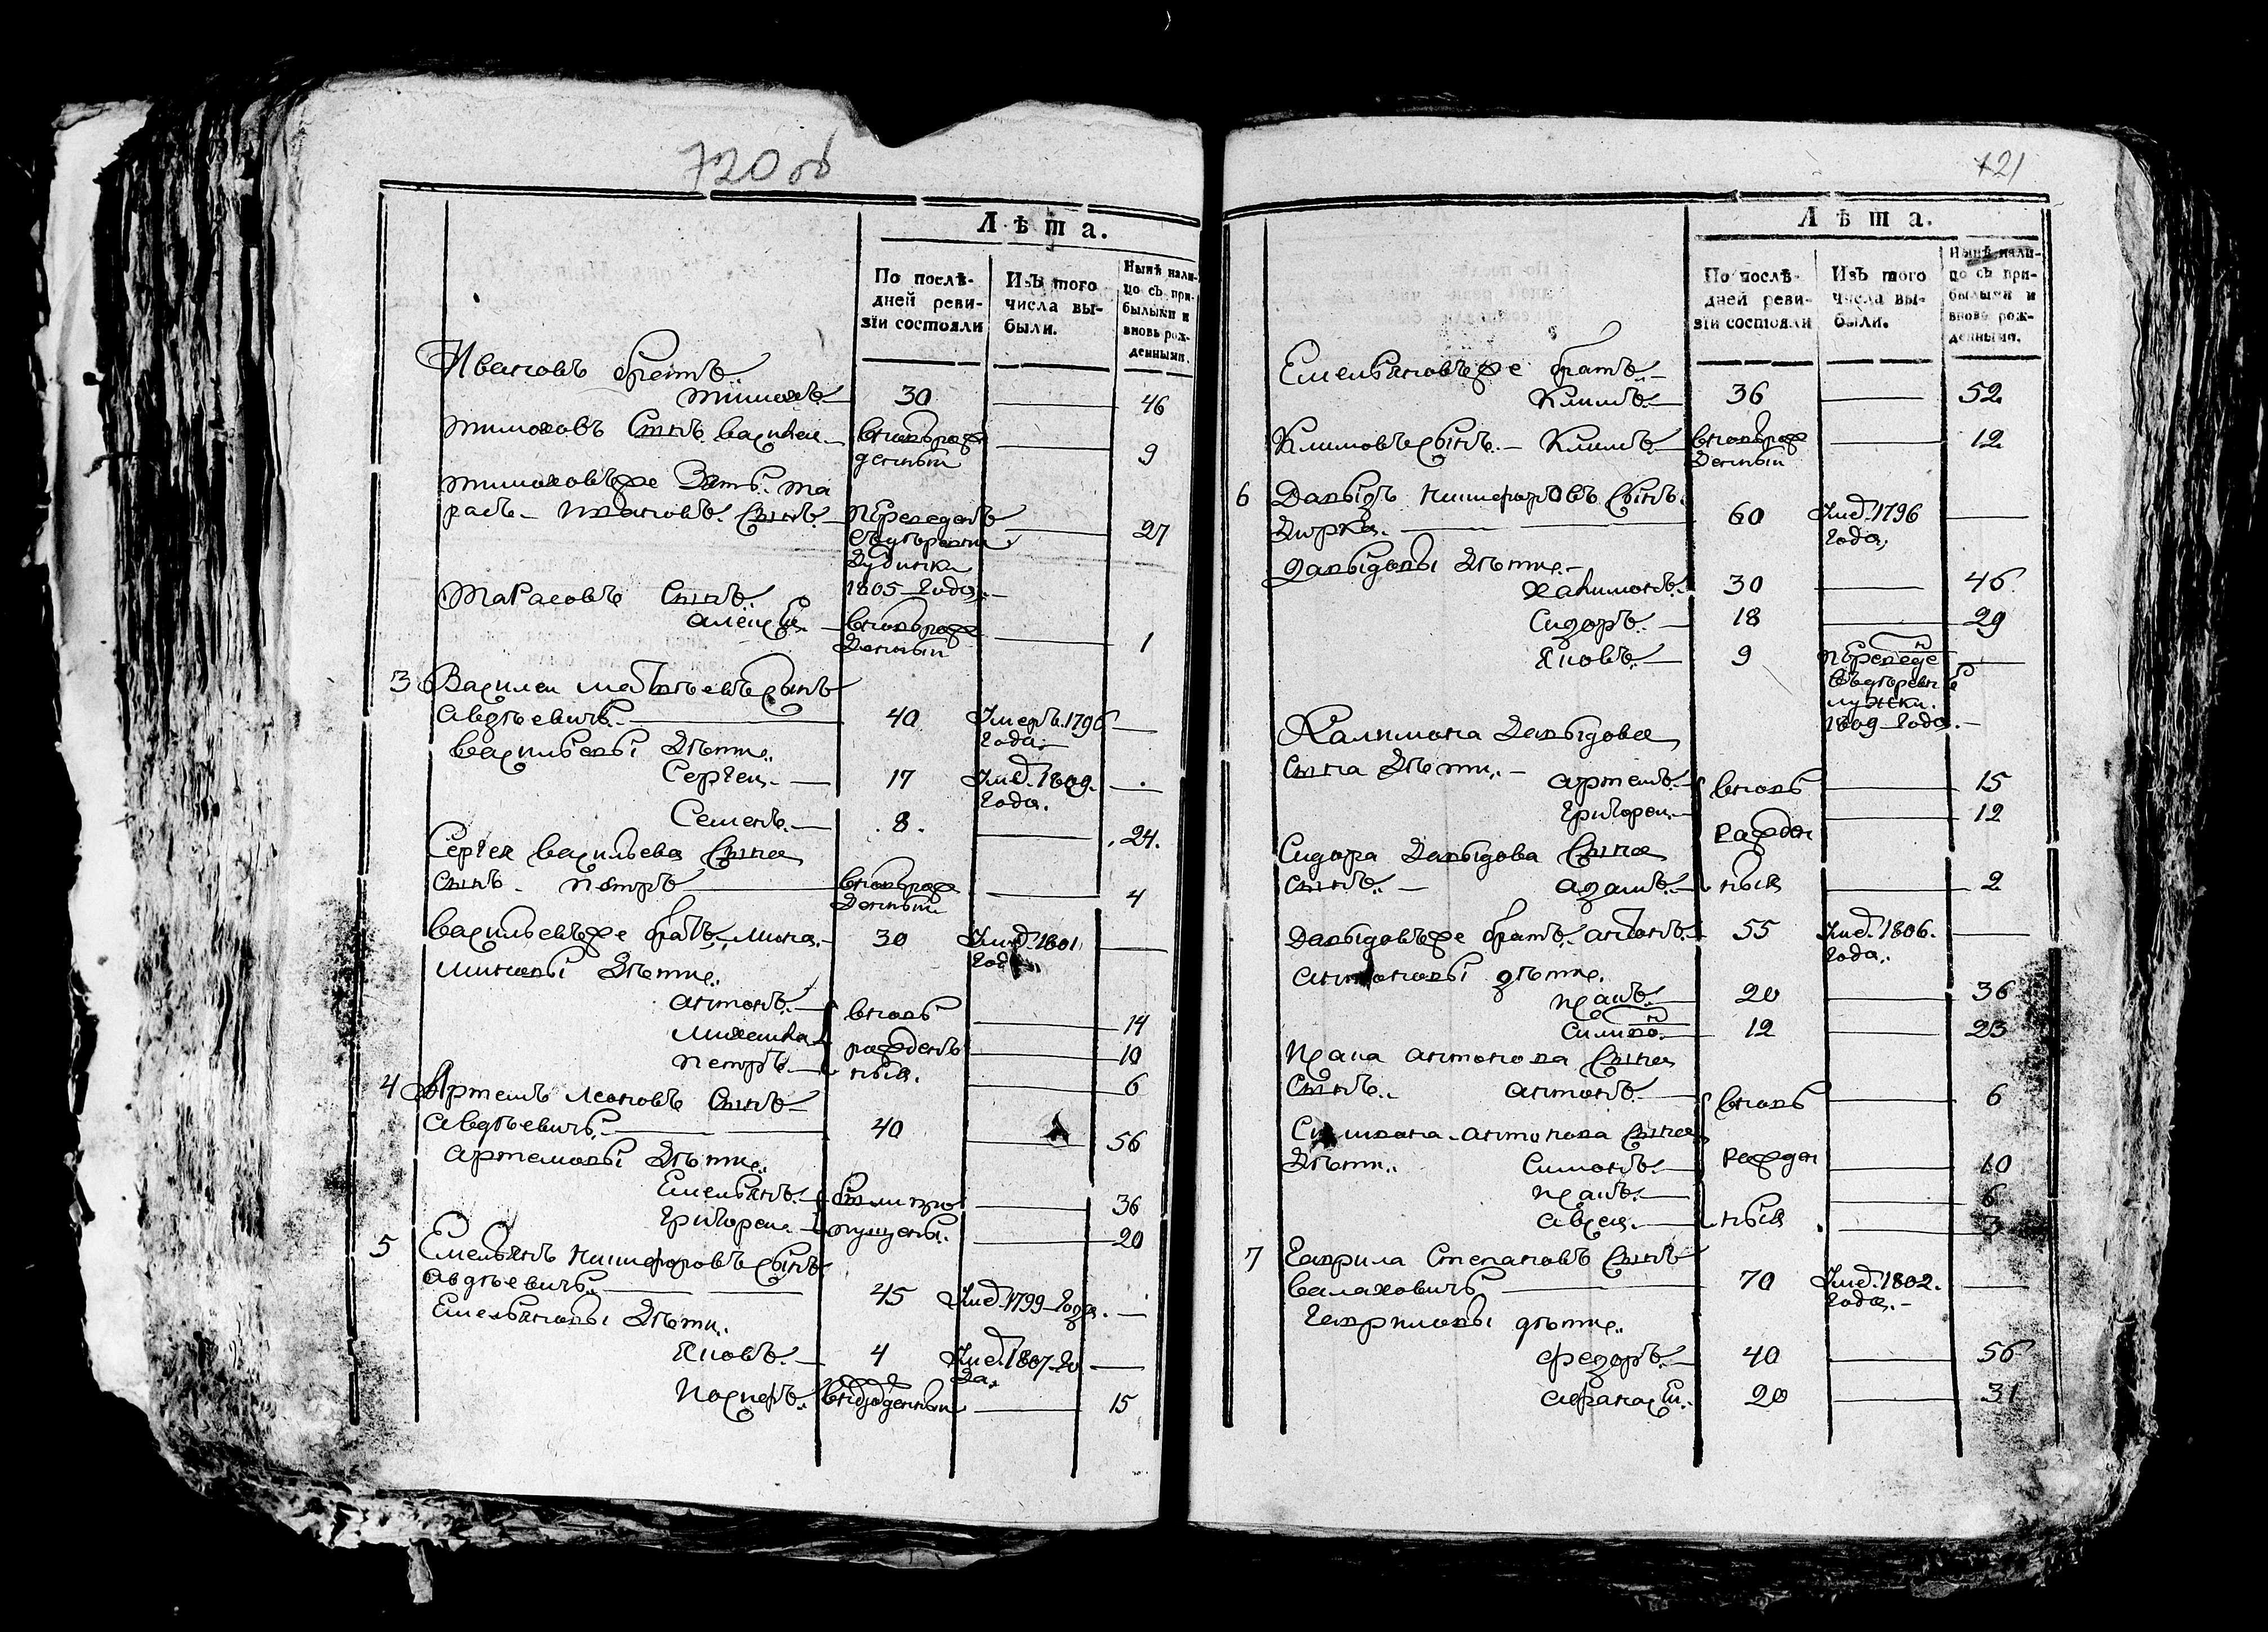 720 об
Лѣта.
По послѣ-
дней реви-
зіи состояли
Изъ того
числа вы-
были.
Нынѣ нали-
цо съ при-
былыми и
вновь рож-
денными.
Ивановъ братъ
Тимохъ 30 46
Тимоховъ сынъ Василей вновьрож 9
денный
Тимоховъ же зять та
расъ Ивановъ сынъ переведенъ 27
съ деревни
Дубники
1805 года
Тарасовъ сынъ
Алексей вновьрож 1
денный
3 Василей Матвѣевъ сынъ
Авдѣевичъ 40 Умеръ 1796
года
Васильевы дѣти
Сергей 17 Умер. 1809.
года.
Семенъ 8. 24.
Сергея Васильева сына
сынъ Петръ вновьрож 4
денный
Васильевъ же братъ Мина 30 Умер. 1801
года
Минины дѣти
Антонъ вновь 14
Михайла рожденъ 10
Петръ ныя. 6
4 Артемъ Леоновъ сынъ
Авдѣевичъ 40 56
Артемовы дѣти
Емельянъ были про 36
Григорей пущены. 20
5 Емельянъ Никифоровъ сынъ
Авдѣевичъ 45 Умер. 1799 года.
Емельяновы дѣти
Яковъ 4 Умер. 1807 го
да
Іосифъ вновьрожденный 15
721
Лѣта.
По послѣ-
дней реви-
зіи состояли
Изъ того
числа вы-
были.
Нынѣ нали-
цо съ при-
былыми и
вновь рож-
денными.
Емельяновъ же братъ
Климъ 36 52
Климовъ сынъ Климъ вновьрож 12
денный
6 Давыдъ Никифоровъ сынъ
60 Умер. 1796
года
Давыдовы дѣти
Халимонъ 30 46
Сидоръ 18 29
Яковъ 9 переведенъ
въ деревню
лужки.
1809 года.
Халимона Давыдова
сына дѣти Артемъ вновь 15
Григорей 12
рожден
Сидора Давыдова сына
сынъ Адамъ ныя 2
Давыдовъ же братъ Антонъ 55 Умер. 1806.
года.
Антоновы дѣти
Иванъ 20 36
Симонъ 12 23
Ивана Антонова сына
сынъ Антонъ вновь 6
Симона Антонова сына
дѣти Симонъ рожден 10
Иванъ 6
Авсей ныя 3
7 Гаврила Степановъ сынъ
Балаховичъ 70 Умер. 1802.
года.
Гавриловы дѣти
Федоръ 40 56
Афанасей 20 31